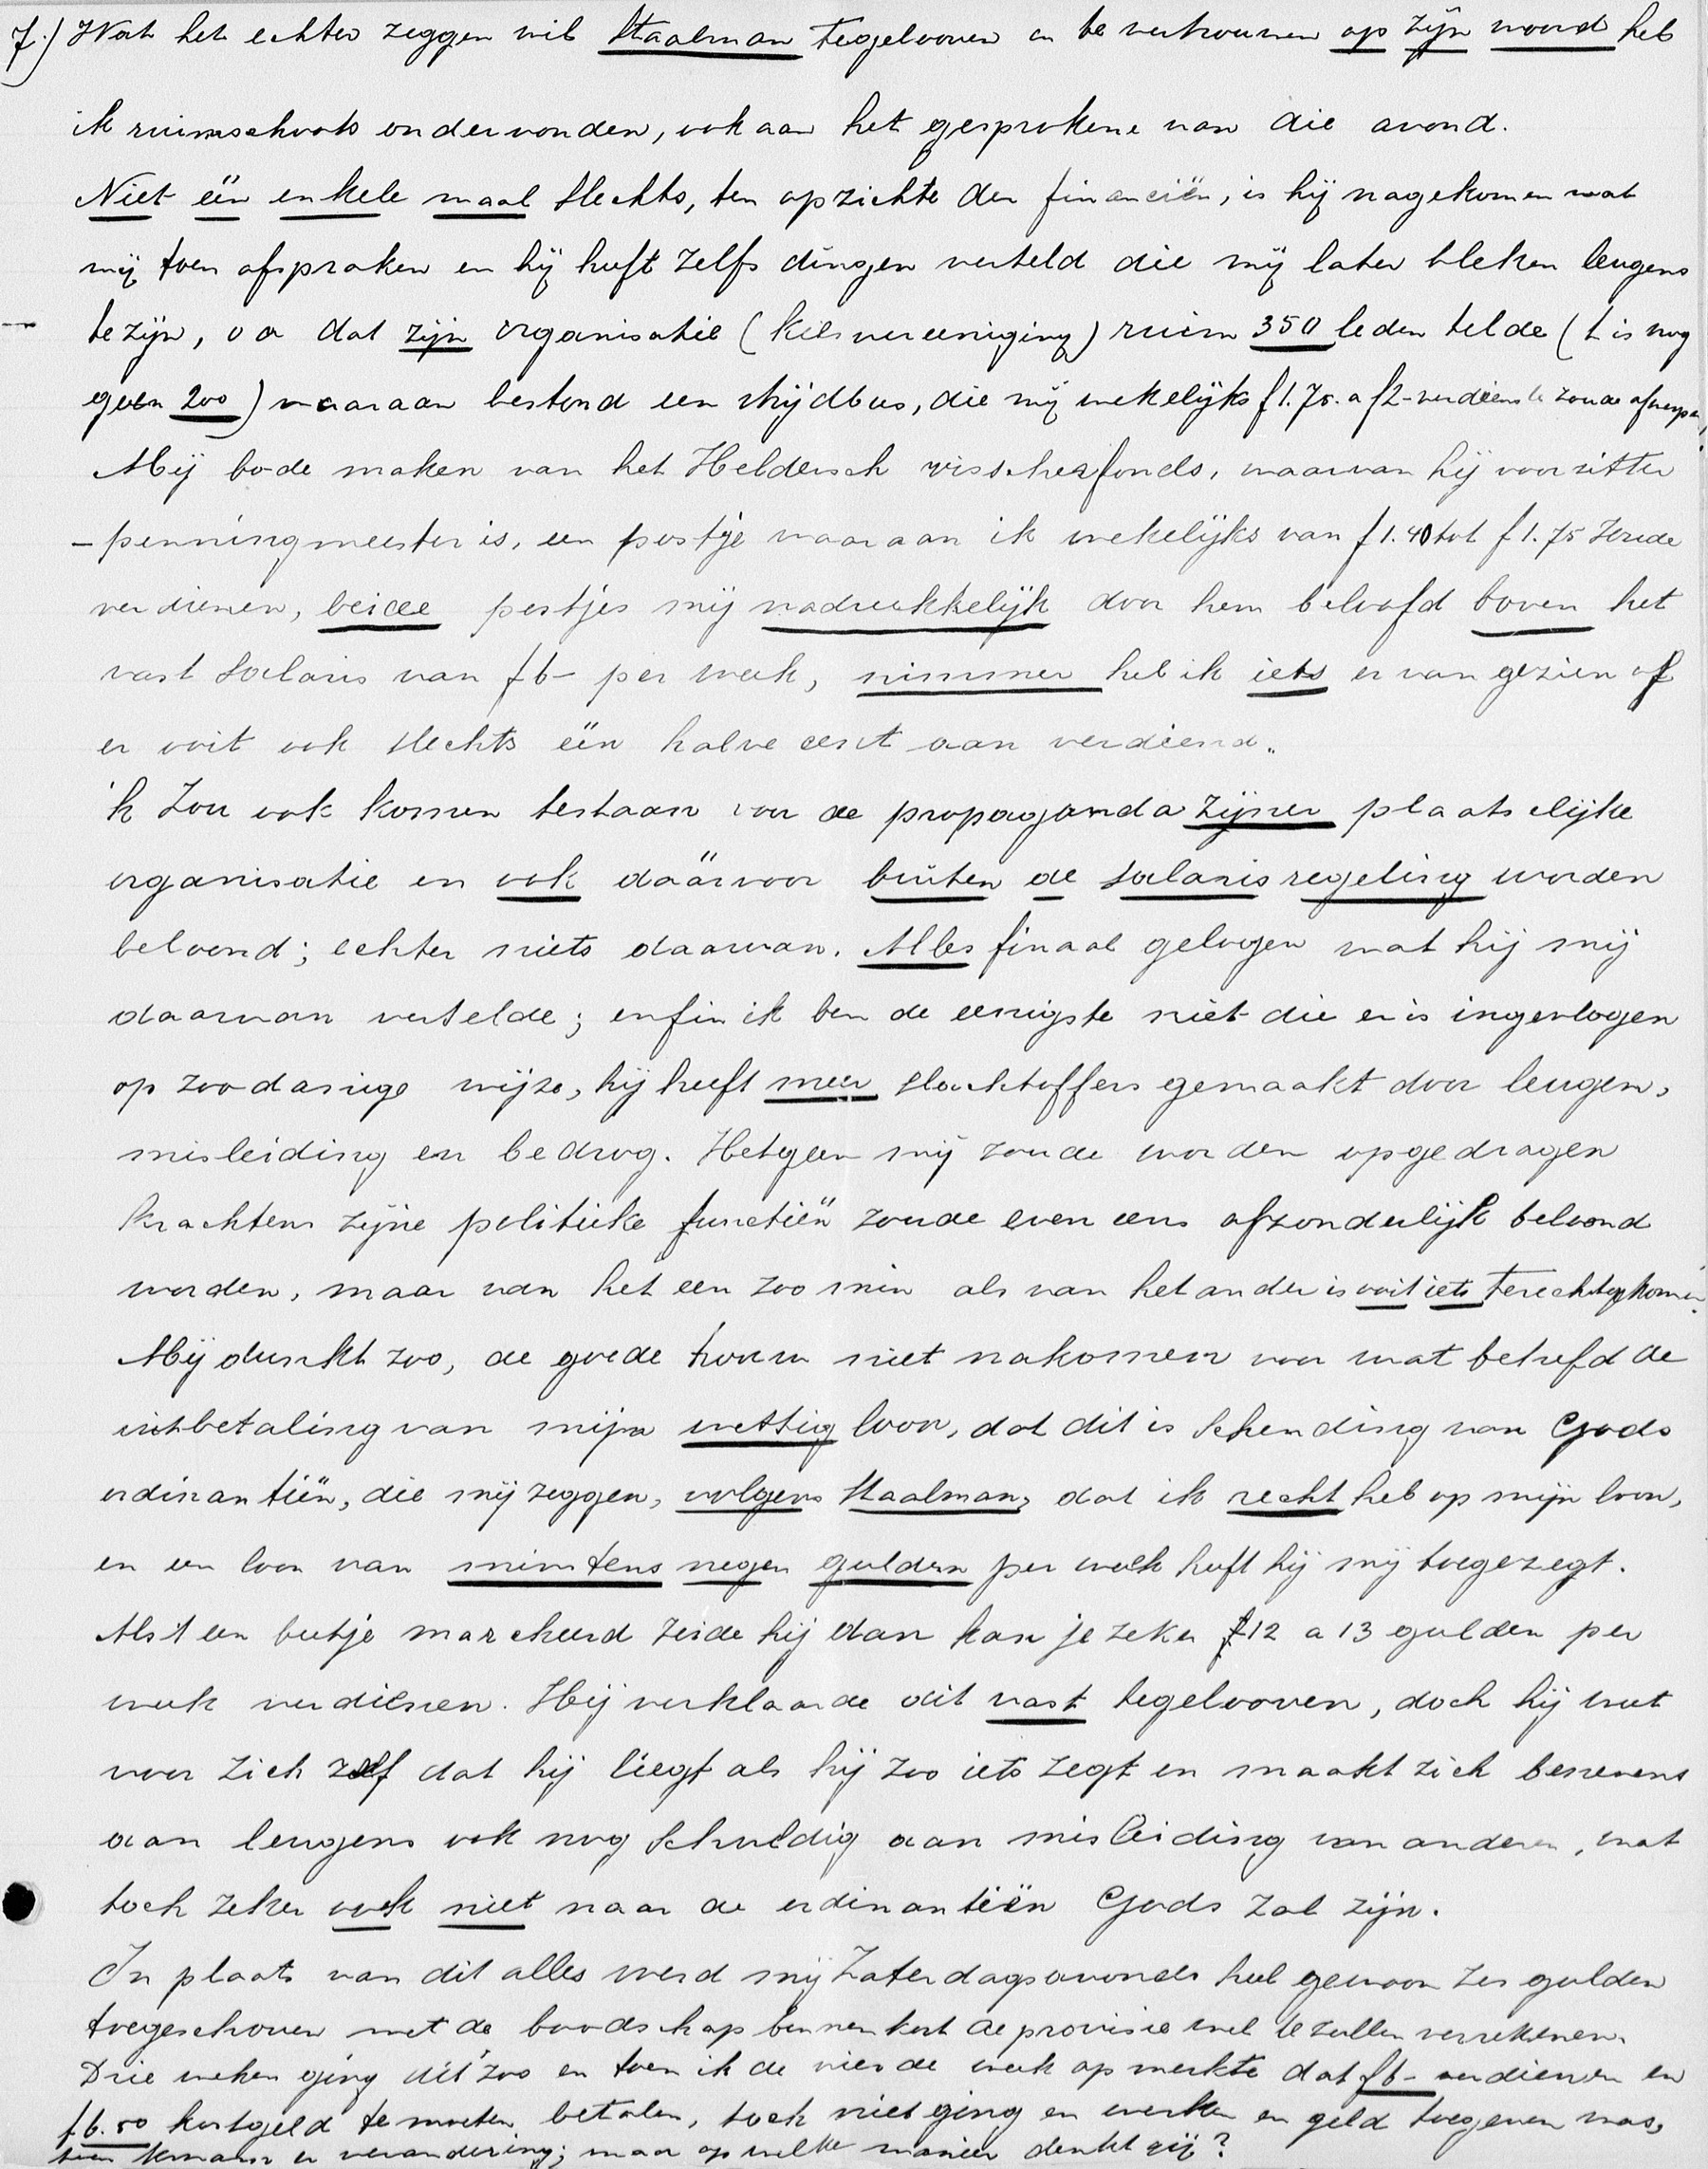 7.) Wat het echter zeggen wil Staalman tegelooven en te vertrouwen op zijn woord heb
ik ruimschoots ondervonden, ook aan het gesprokene van die avond.
Niet één enkele maal slechts, ten opzichte der financiën, is hij nagekomen wat
wij toen afspraken en hij heeft zelfs dingen verteld die mij later bleken leugens
te zijn, o a dat zijn organisatie (kiesvereeniging) ruim 350 leden telde ('t is nog
geen 200) waaraan bestond een strijdbus, die mij wekelijks f1.75. a f2- verdienste zoude afwerpen,
Mij bode maken van het Heldersch visschersfonds, waarvan hij voorzitter
- penningmeester is, een postje waaraan ik wekelijks van f 1.40 tot f 1.75 zoude
verdienen, beide postjes mij nadrukkelijk door hem beloofd boven het
vast salaris van f6- per week, nimmer heb ik iets er van gezien of
er ooit ook slechts één halve cent aan verdiend.
'k Zou ook komen testaan voor de propaganda zijner plaatselijke
organisatie en ook dáárvoor buiten de salarisregeling worden
beloond; echter niets daarvan. Alles finaal gelogen wat hij mij
daarvan vertelde; enfin ik ben de eenigste niet die er is ingevlogen
op zoodanige wijze, hij heeft meer slachtoffers gemaakt door leugen,
misleiding en bedrog. Hetgeen mij zoude worden opgedragen
krachtens zijne politieke functiën zoude eveneens afzonderlijk beloond
worden, maar van het een zoo min als van het ander is ooit iets terechtgekomen.
Mij dunkt zoo, de goede trouw niet nakomen voor wat betrefd de
uitbetaling van mijn wettig loon, dat dit is schending van Gods
ordinantiën, die mij zeggen, volgens Staalman, dat ik recht heb op mijn loon,
en een loon van minstens negen gulden per week heeft hij mij toegezegt.
Als 't een beetje marcheerd zeide hij dan kan je zeker f12 a 13 gulden per
week verdienen. Hij verklaarde dit vast tegelooven, doch hij weet
voor zich zelf dat hij liegt als hij zoo iets zegt en maakt zich benevens
aan leugens ook nog schuldig aan misleiding van anderen, wat
toch zeker ook niet naar de ordinantiën Gods zal zijn.
In plaats van dit alles werd mij Zaterdagsavonds heel gewoon zes gulden
toegeschoven met de boodschap binnenkort de provisie wel te zullen verrekenen.
Drie weken ging dit zoo en toen ik de vierde week opmerkte dat f6- verdienen en
f.6.50 kostgeld te moeten betalen, toch niet ging en werken en geld toegeven was,
toen kwam er verandering; maar op welke manier denkt gij?